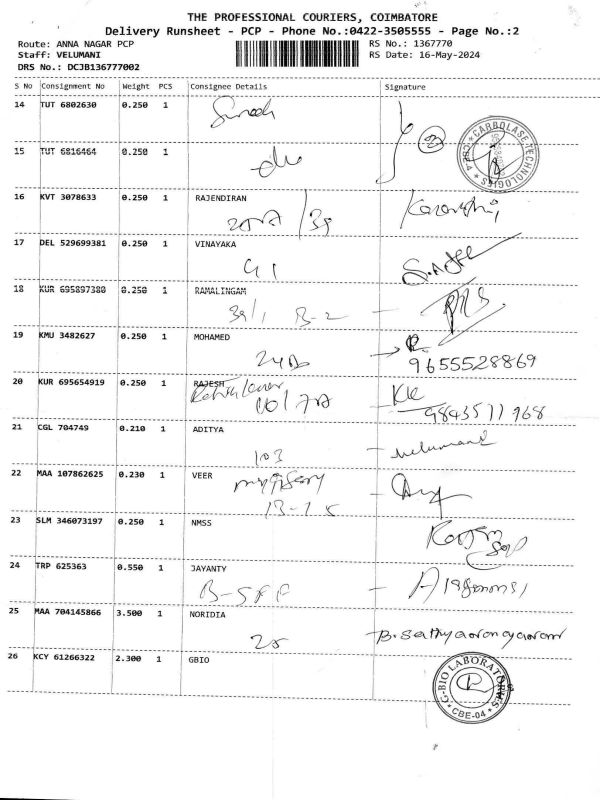 THE PROFESSIONAL COURIERS, COIMBATORE
Delivery Runsheet - PCP - Phone No.:0422-3505555 - Page No.:2
Route: ANNA NAGAR PCP
Staff: VELUMANI
DRS No.: DCJB136777002
RS No.: 1367770
RS Date: 16-May-2024
S No Consignment No Weight PCS Consignee Details Signature
14 TUT 6802630 0.250 1
Suresh
2
CARBOLASE TECHNOLOGIES
15 TUT 6816464 0.250 1
16 KVT 3078633 0.250 1 RAJENDIRAN
17 DEL 529699381 0.250 1 VINAYAKA
18 KUR 695897380 0.250 1 RAMALINGAM
39/1 B-2
19 KMU 3482627 0.250 1 MOHAMED
9655528869
20 KUR 695654919 0.250 1 RAJESH
KK
21 CGL 704749 0.210 1 ADITYA
103 velumani
22 MAA 107862625 0.230 1 VEER
23 SLM 346073197 0.250 1 NMSS
24 TRP 625363 0.550 1 JAYANTY
25 MAA 704145866 3.500 1 NORIDIA
25 B. Sathyanarayanan
26 KCY 61266322 2.300 1 GBIO
G-BIO LABORATORIES
* CBE-04 *